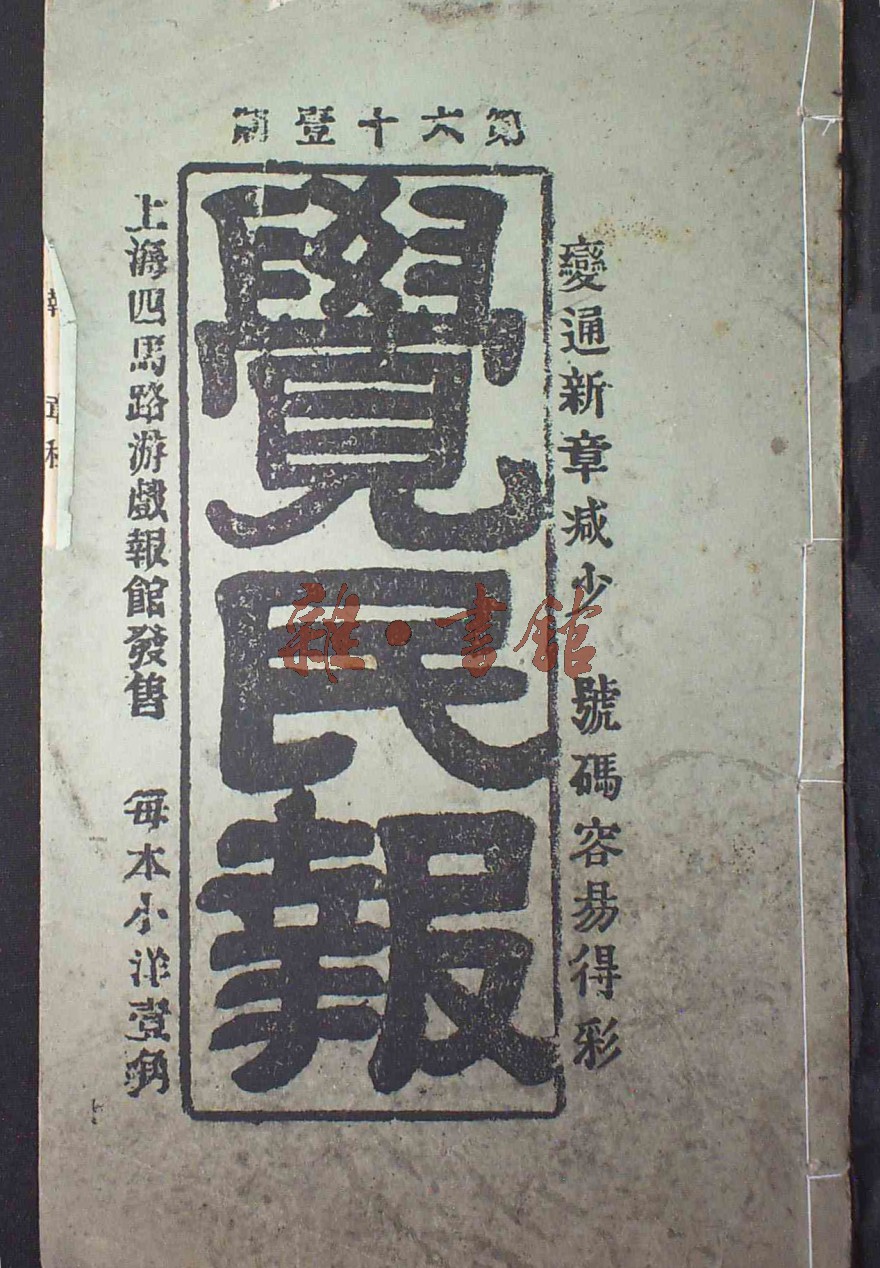 第六十壹期
變通新章減少號碼容易得彩
覺民報
上海四馬路游戲報館發售 每本小洋壹角
雜·書館